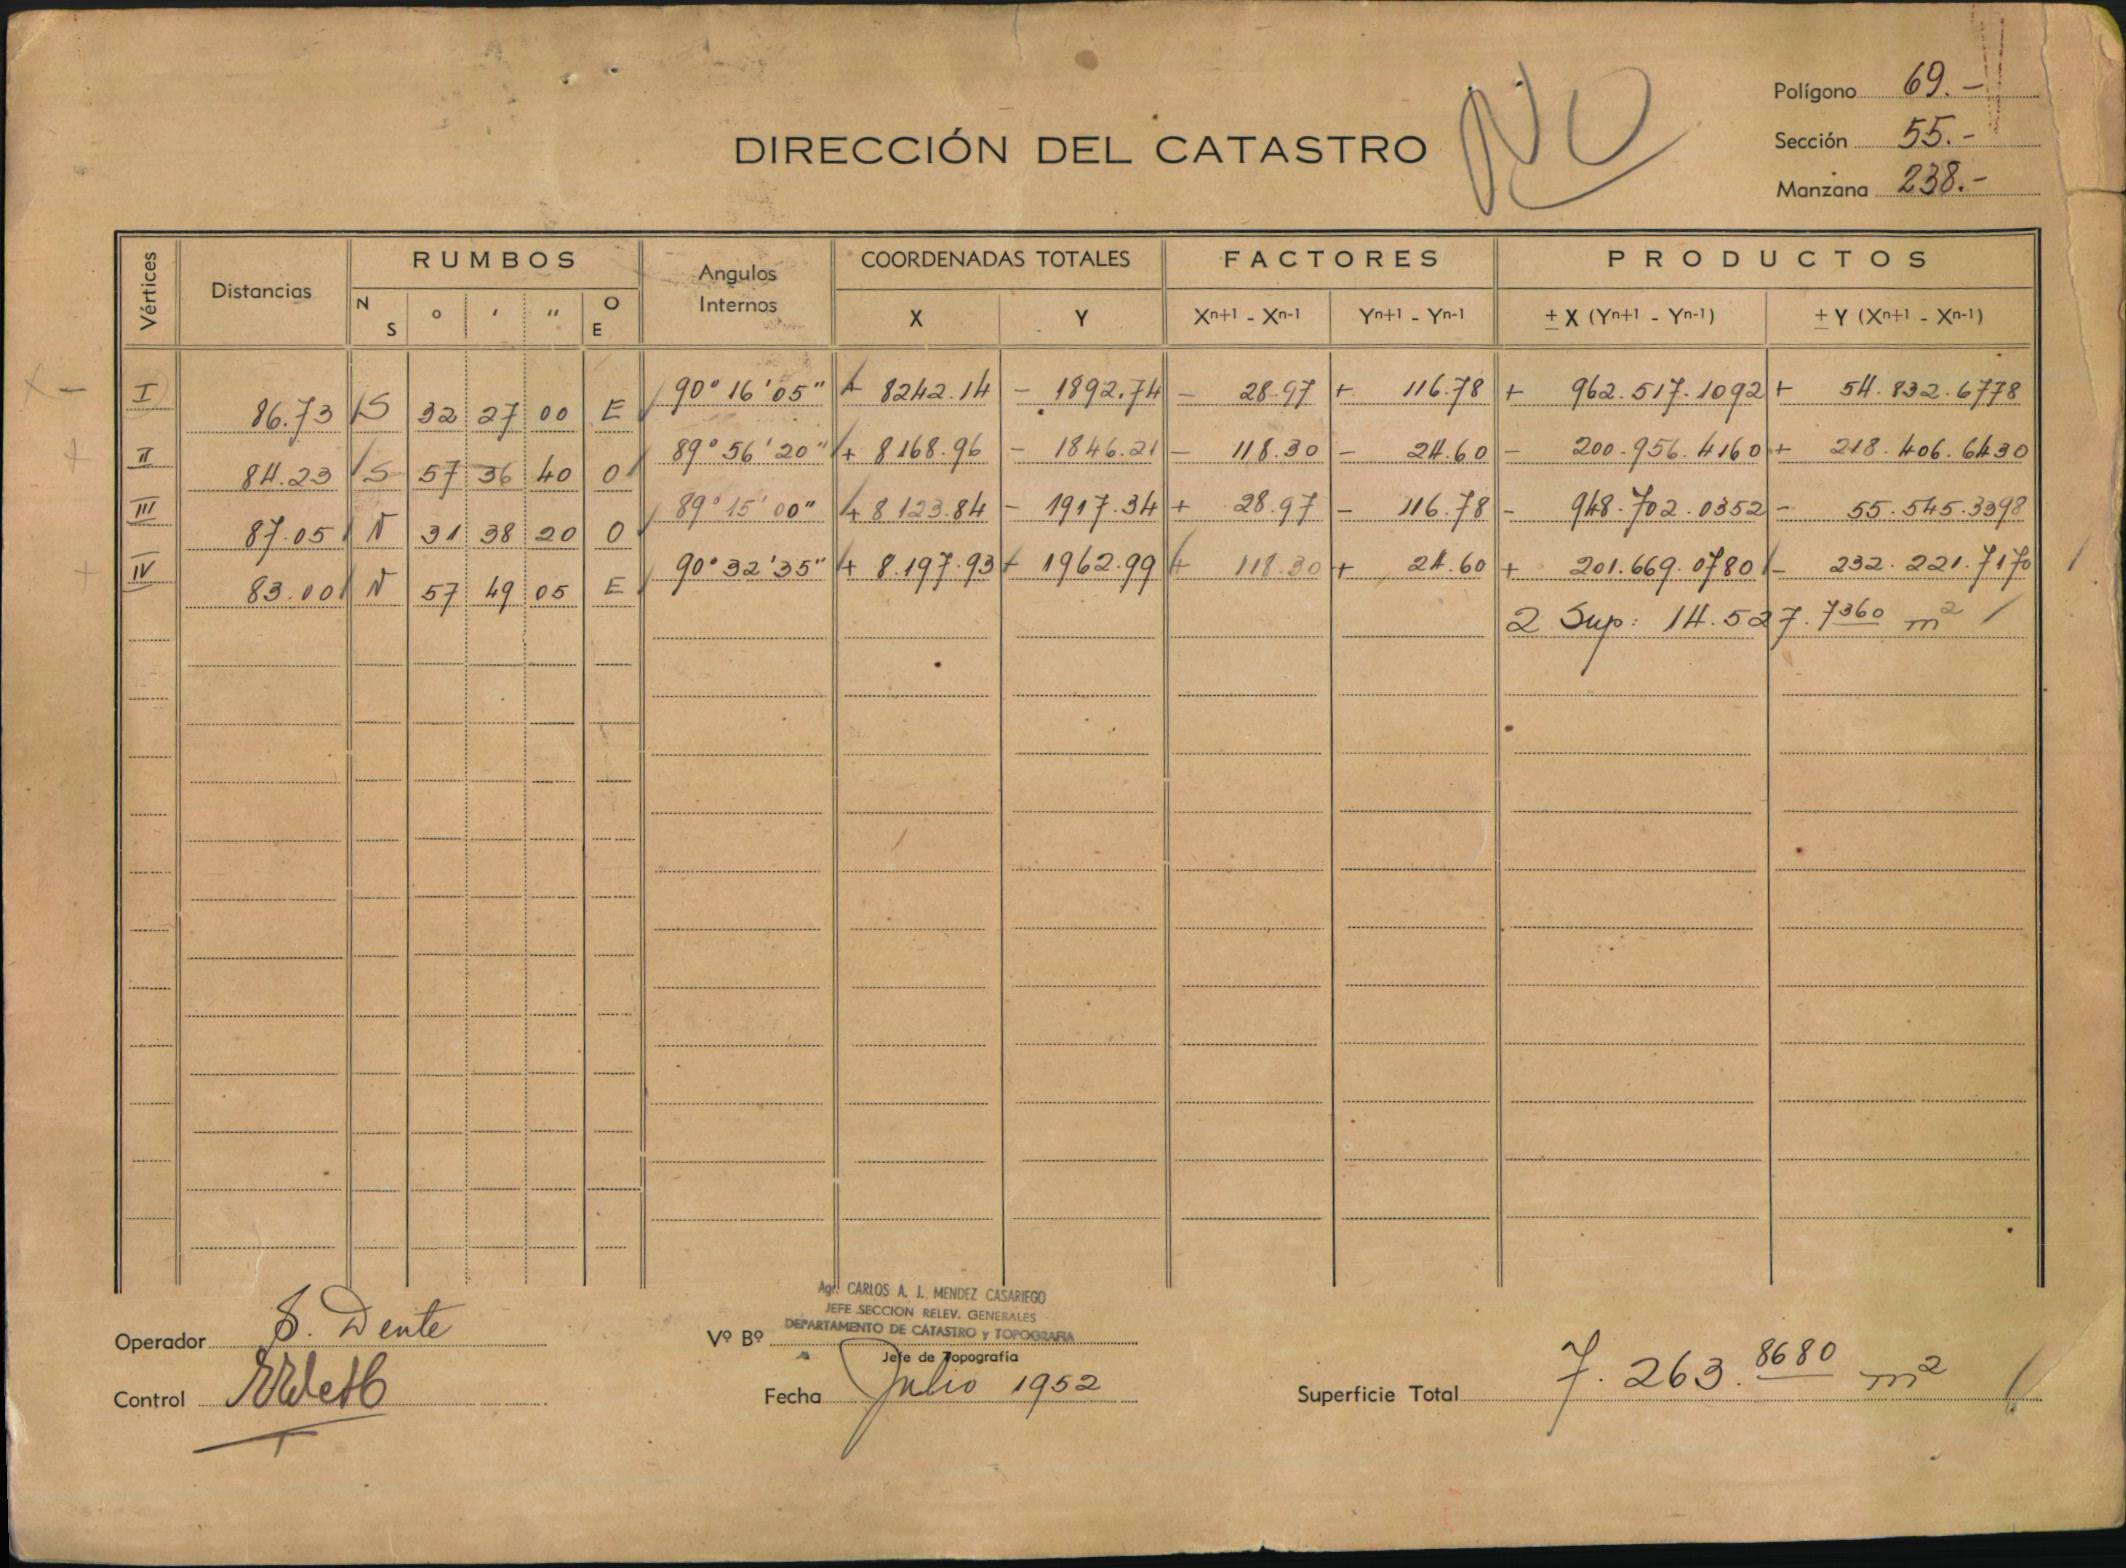 Polígono 69.-
NO
DIRECCIÓN DEL CATASTRO
Sección 55.-
Manzana 238.-
Vértices Distancias RUMBOS Angulos Internos COORDENADAS TOTALES FACTORES PRODUCTOS
N S ° ' " O E X Y Xn+1 - Xn-1 Yn+1 - Yn-1 ± X (Yn+1 - Yn-1) ± Y (Xn+1 - Xn-1)
I 90° 16' 05" + 8242.14 - 1892.74 - 28.97 + 116.78 + 962.517.1092 + 54.832.6778
86.73 S 32 27 00 E
II 89° 56' 20" + 8168.96 - 1846.21 - 118.30 - 24.60 - 200.956.4160 + 218.406.6430
84.23 S 57 36 40 O
III 89° 15' 00" + 8123.84 - 1917.34 + 28.97 - 116.78 - 948.702.0352 - 55.545.3398
87.05 N 31 38 20 O
IV 90° 32' 35" + 8.197.93 + 1962.99 + 118.30 + 24.60 + 201.669.0780 - 232.221.7170
83.00 N 57 49 05 E
2 Sup: 14.527.7360 m2
Agr. CARLOS A. J. MENDEZ CASARIEGO
JEFE SECCION RELEV. GENERALES
DEPARTAMENTO DE CATASTRO y TOPOGRAFIA
Operador S. Dente
Vº Bº
Jefe de Topografía
Control
Fecha Julio 1952
Superficie Total 7.263.8680 m2